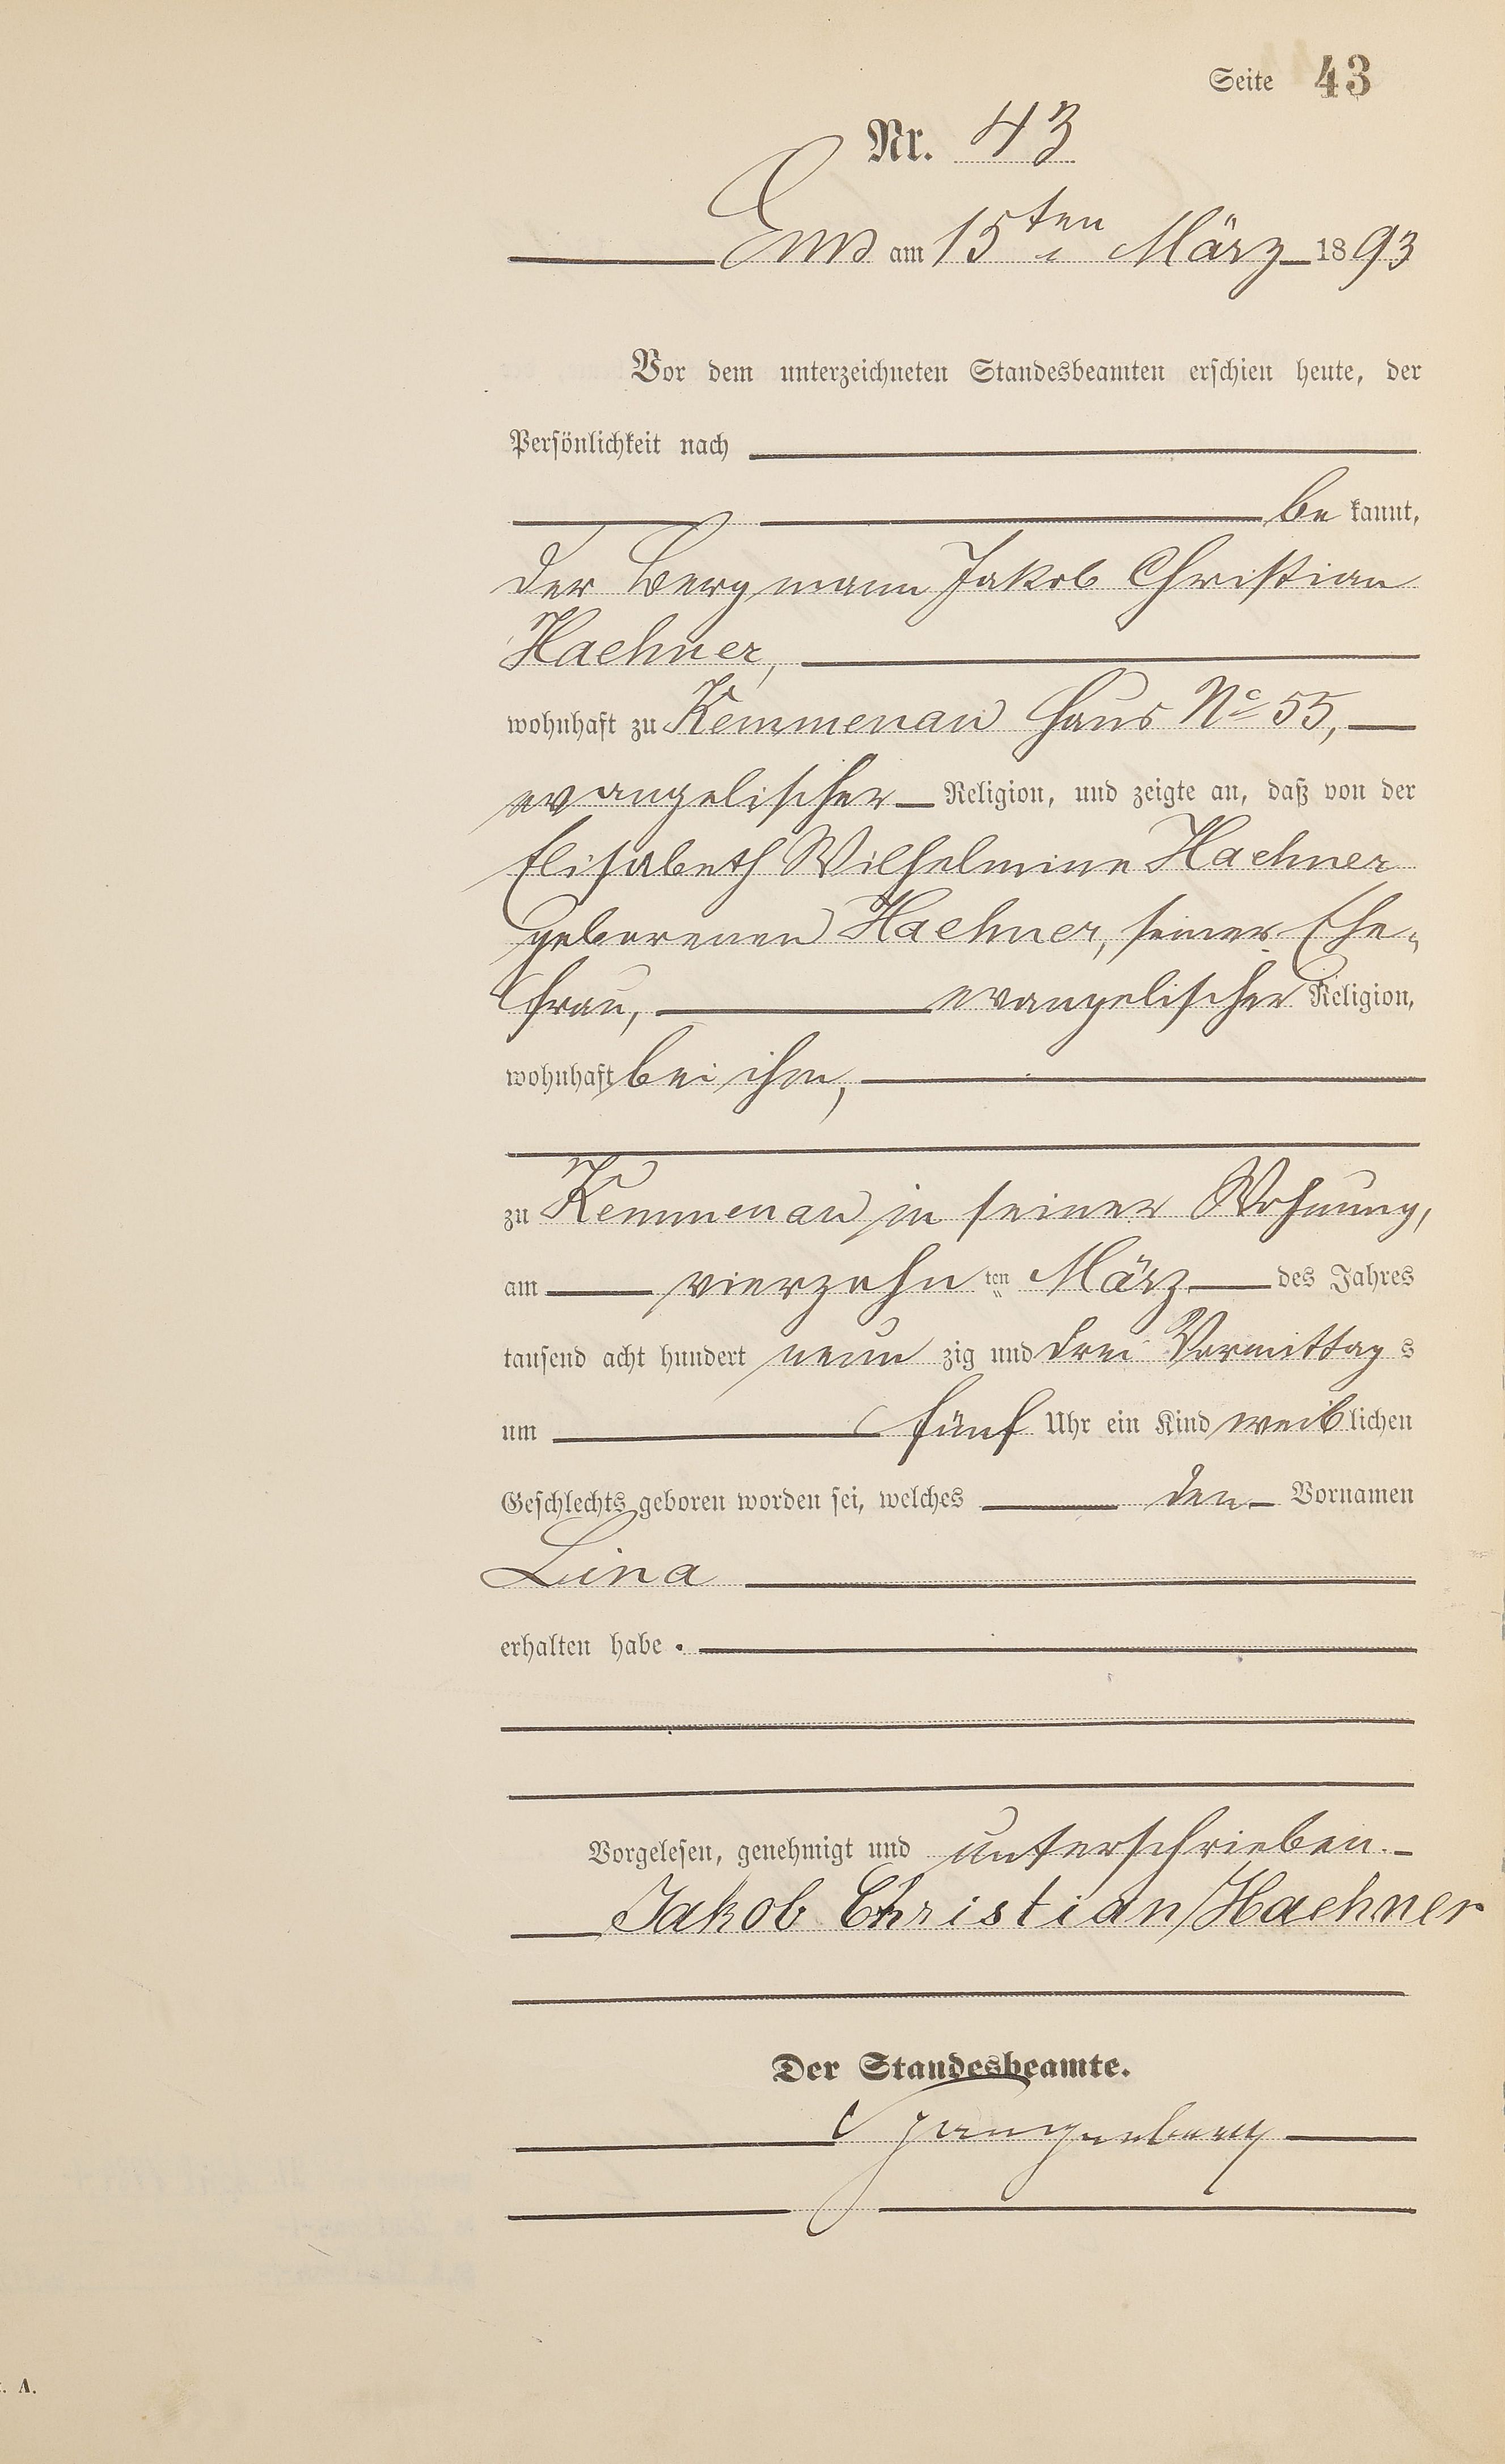 Seite 43
Nr. 43
Ems am 15ten März 1893
Vor dem unterzeichneten Standesbeamten erschien heute, der
Persönlichkeit nach
be kannt,
der Bergmann Jakob Christian
Haehner,
wohnhaft zu Kemmenau Haus No 55,
evangelischer Religion, und zeigte an, daß von der
Elisabeth Wilhelmine Haehner
geborenen Haehner, seiner Ehe-
frau, evangelischer Religion,
wohnhaft bei ihm,
zu Kemmenau in seiner Wohnung,
am vierzehn ten März des Jahres
tausend acht hundert neun zig und drei Vormittag s
um fünf Uhr ein Kind weiblichen
Geschlechts geboren worden sei, welches den Vornamen
Lina
erhalten habe.
Vorgelesen, genehmigt und unterschrieben.
Jakob Christian Haehner
Der Standesbeamte.
A.